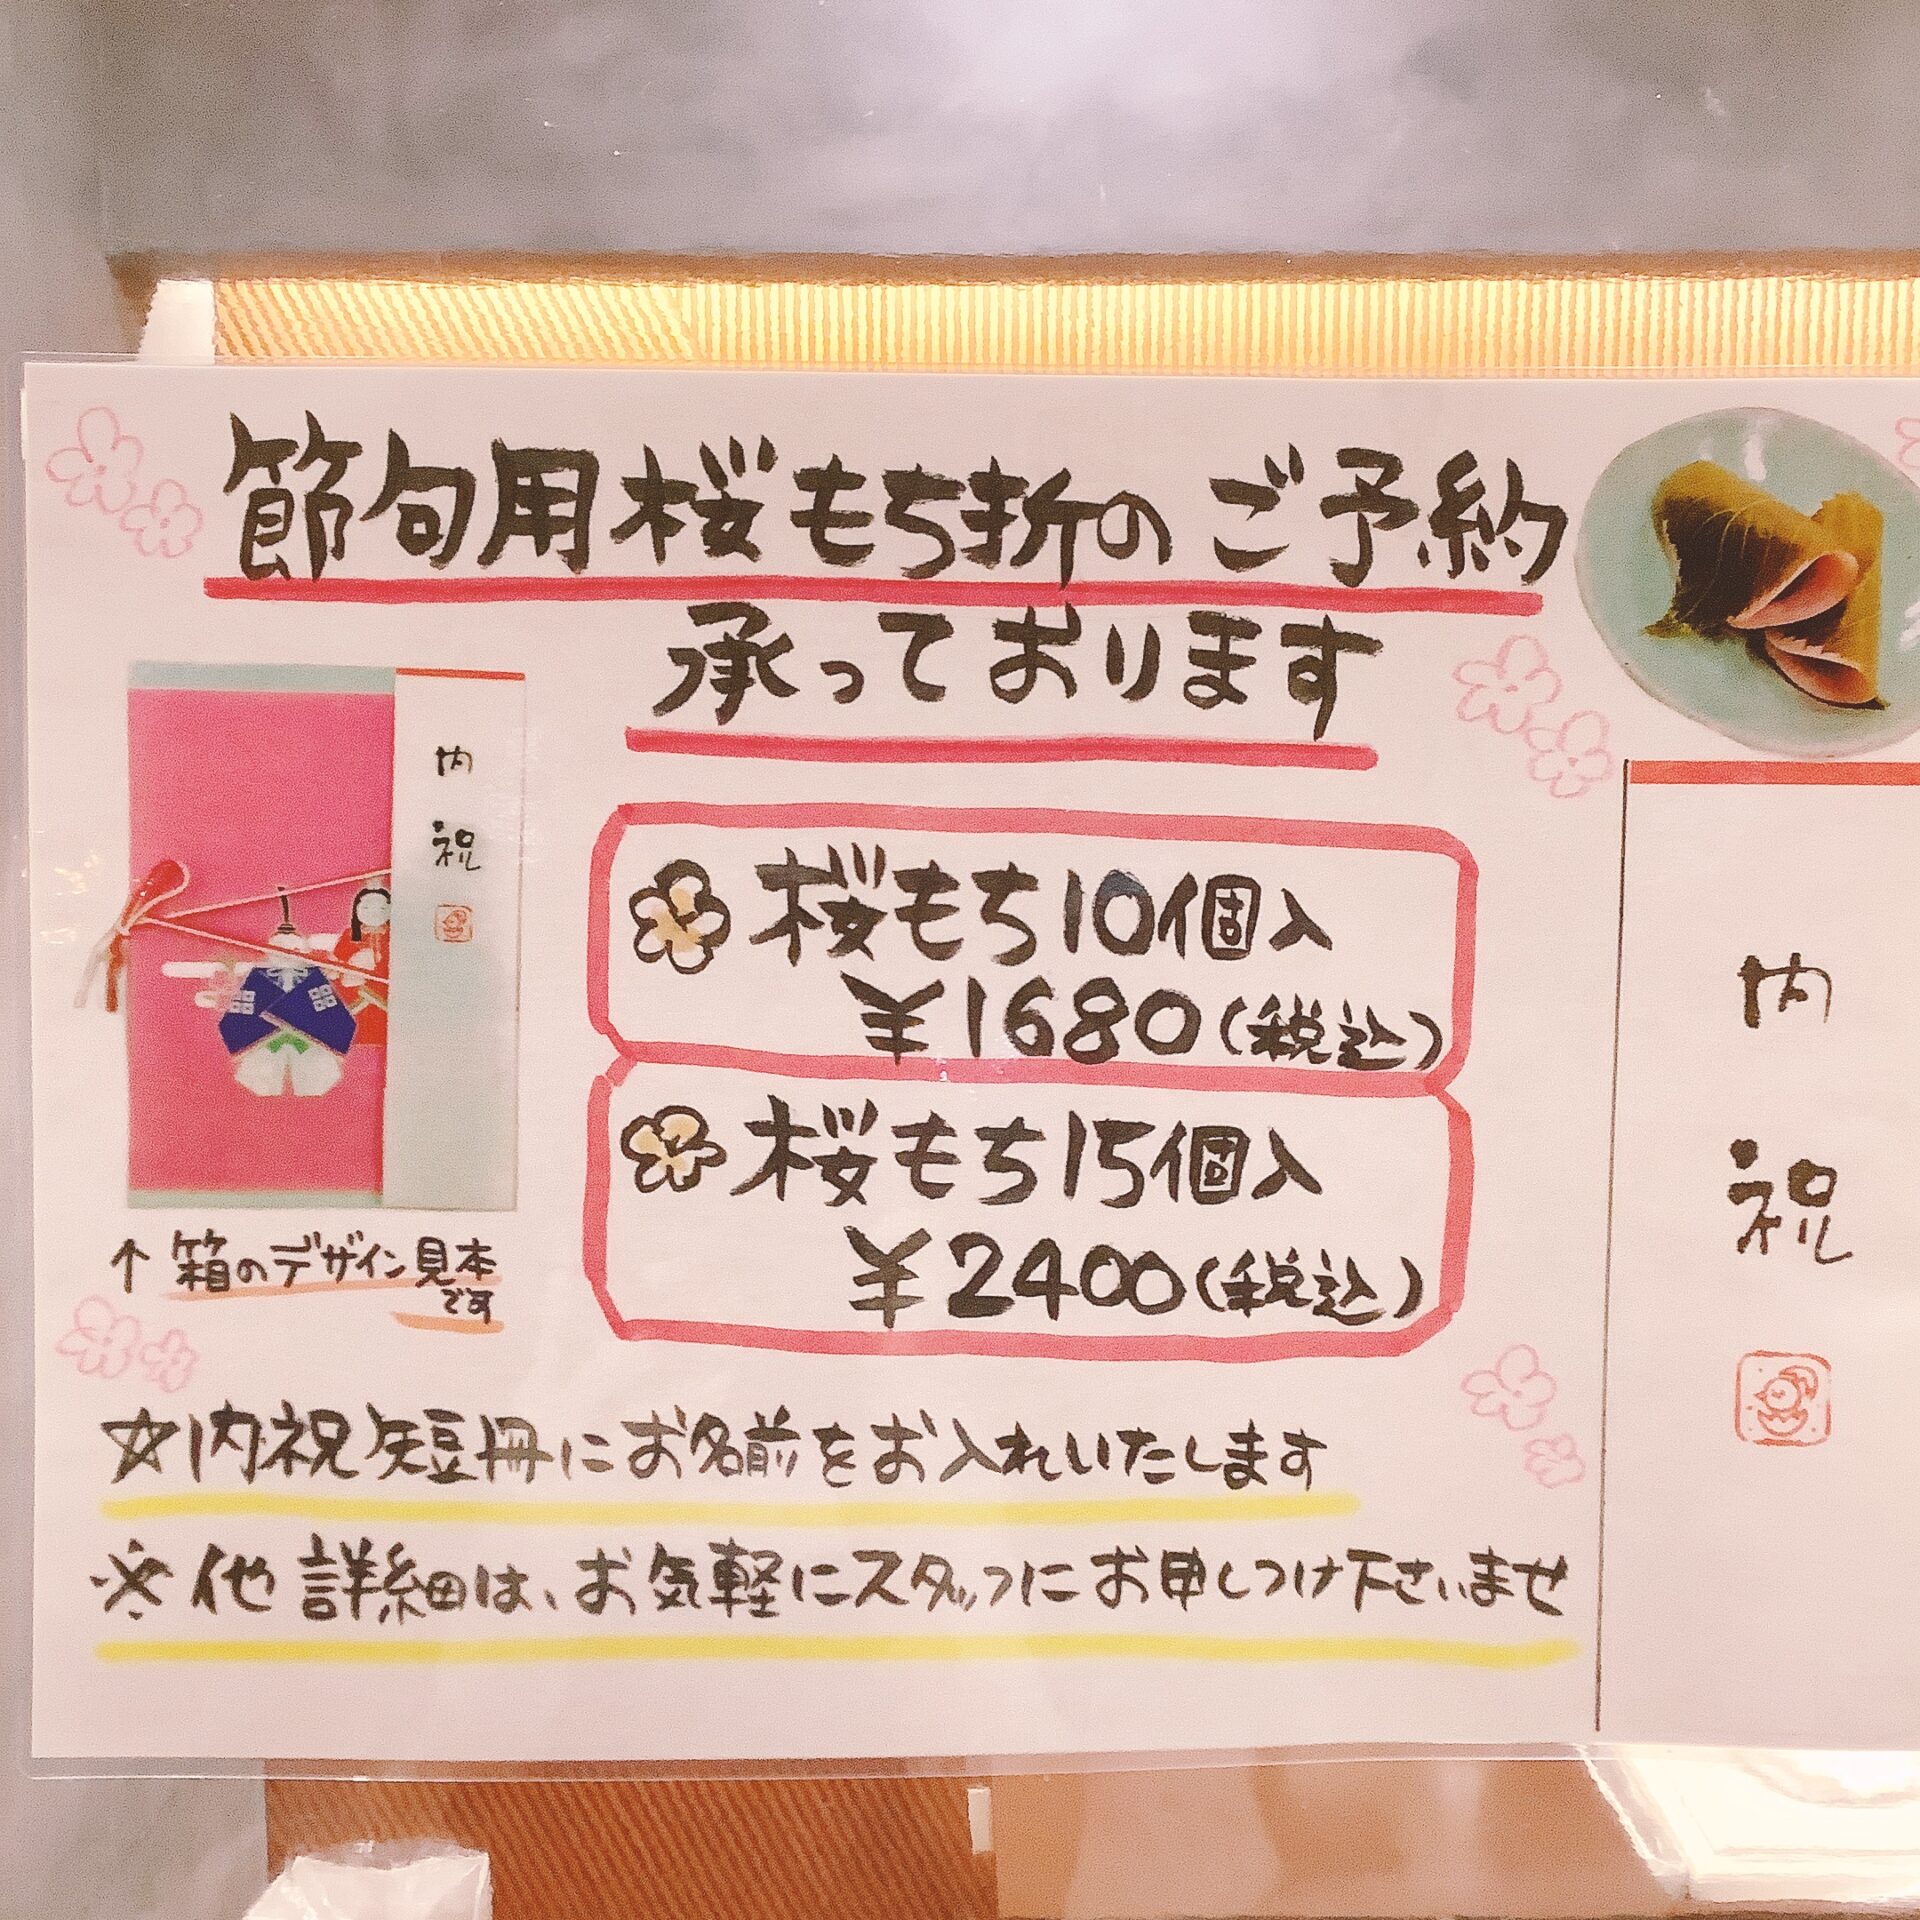 節句用桜もち折のご予約
承っております
内祝
桜もち10個入
¥1680(税込)
桜もち15個入
¥2400(税込)
↑ 箱のデザイン見本
です
☆内祝短冊にお名前をお入れいたします
※他 詳細は、お気軽にスタッフにお申しつけ下さいませ
内祝